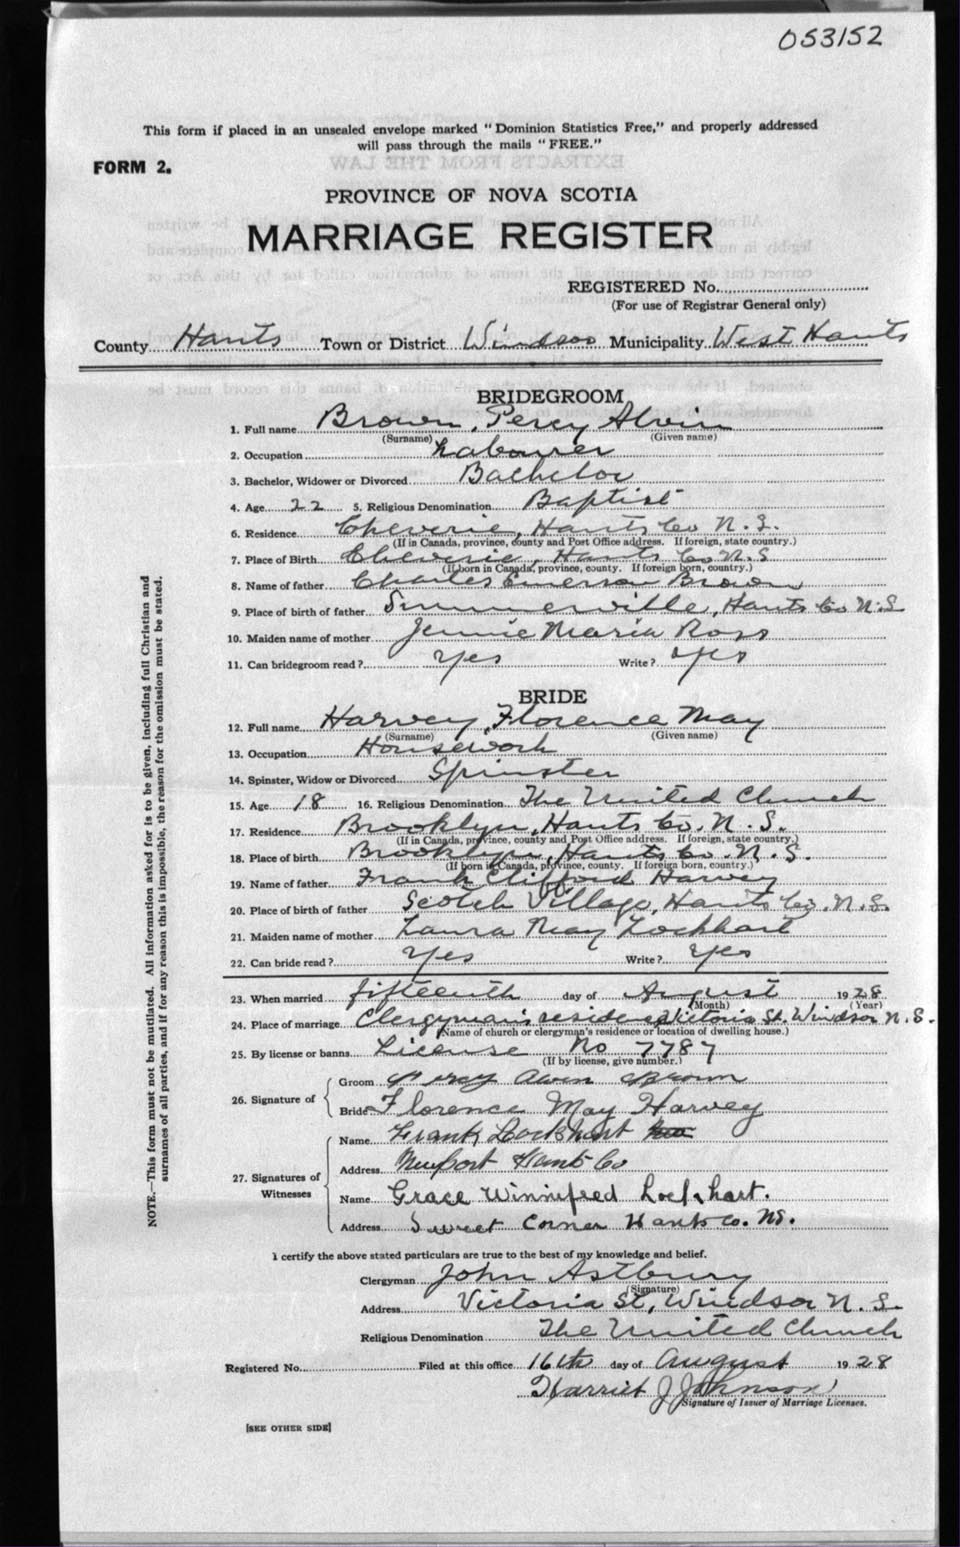 053152
This form if placed in an unsealed envelope marked "Dominion Statistics Free," and properly addressed
will pass through the mails "FREE."
FORM 2.
PROVINCE OF NOVA SCOTIA
MARRIAGE REGISTER
REGISTERED No.
(For use of Registrar General only)
County Hants Town or District Windsor Municipality West Hants
BRIDEGROOM
1. Full name Brown, Percy Alvin
(Surname) (Given name)
2. Occupation Labourer
3. Bachelor, Widower or Divorced Bachelor
4. Age 22 5. Religious Denomination Baptist
6. Residence Cheverie, Hants Co N.S.
(If in Canada, province, county and Post Office address. If foreign, state country.)
7. Place of Birth Cheverie, Hants Co N.S
(If born in Canada, province, county. If foreign born, country.)
8. Name of father Charles Emerson Brown
9. Place of birth of father Summerville, Hants Co N.S
10. Maiden name of mother Jennie Maria Ross
11. Can bridegroom read? Yes Write? Yes
BRIDE
12. Full name Harvey, Florence May
(Surname) (Given name)
13. Occupation Housework
14. Spinster, Widow or Divorced Spinster
15. Age 18 16. Religious Denomination The United Church
17. Residence Brooklyn, Hants Co. N.S.
(If in Canada, province, county and Post Office address. If foreign, state country.)
18. Place of birth Brooklyn, Hants Co. N.S.
(If born in Canada, province, county. If foreign born, country.)
19. Name of father Frank Clifford Harvey
20. Place of birth of father Scotch Village, Hants Co. N.S.
21. Maiden name of mother Laura May Lockhart
22. Can bride read? Yes Write? Yes
23. When married fifteenth day of August 1928
(Month) (Year)
24. Place of marriage Clergyman's residence Victoria St. Windsor N.S.
(Name of church or clergyman's residence or location of dwelling house.)
25. By license or banns License No 7787
(If by license, give number.)
26. Signature of
Groom Percy Alvin Brown
Bride Florence May Harvey
27. Signatures of Witnesses
Name Frank Lockhart
Address Newport Hants Co
Name Grace Winnifred Lockhart.
Address Sweet Corner Hants co. NS.
I certify the above stated particulars are true to the best of my knowledge and belief.
Clergyman John Astbury
(Signature)
Address Victoria St, Windsor N.S.
Religious Denomination The United Church
Registered No. Filed at this office 16th day of August 1928
Harriet J Johnson
Signature of Issuer of Marriage Licenses.
[SEE OTHER SIDE]
NOTE.—This form must not be mutilated. All information asked for is to be given, including full Christian and
surnames of all parties, and if for any reason this is impossible, the reason for the omission must be stated.